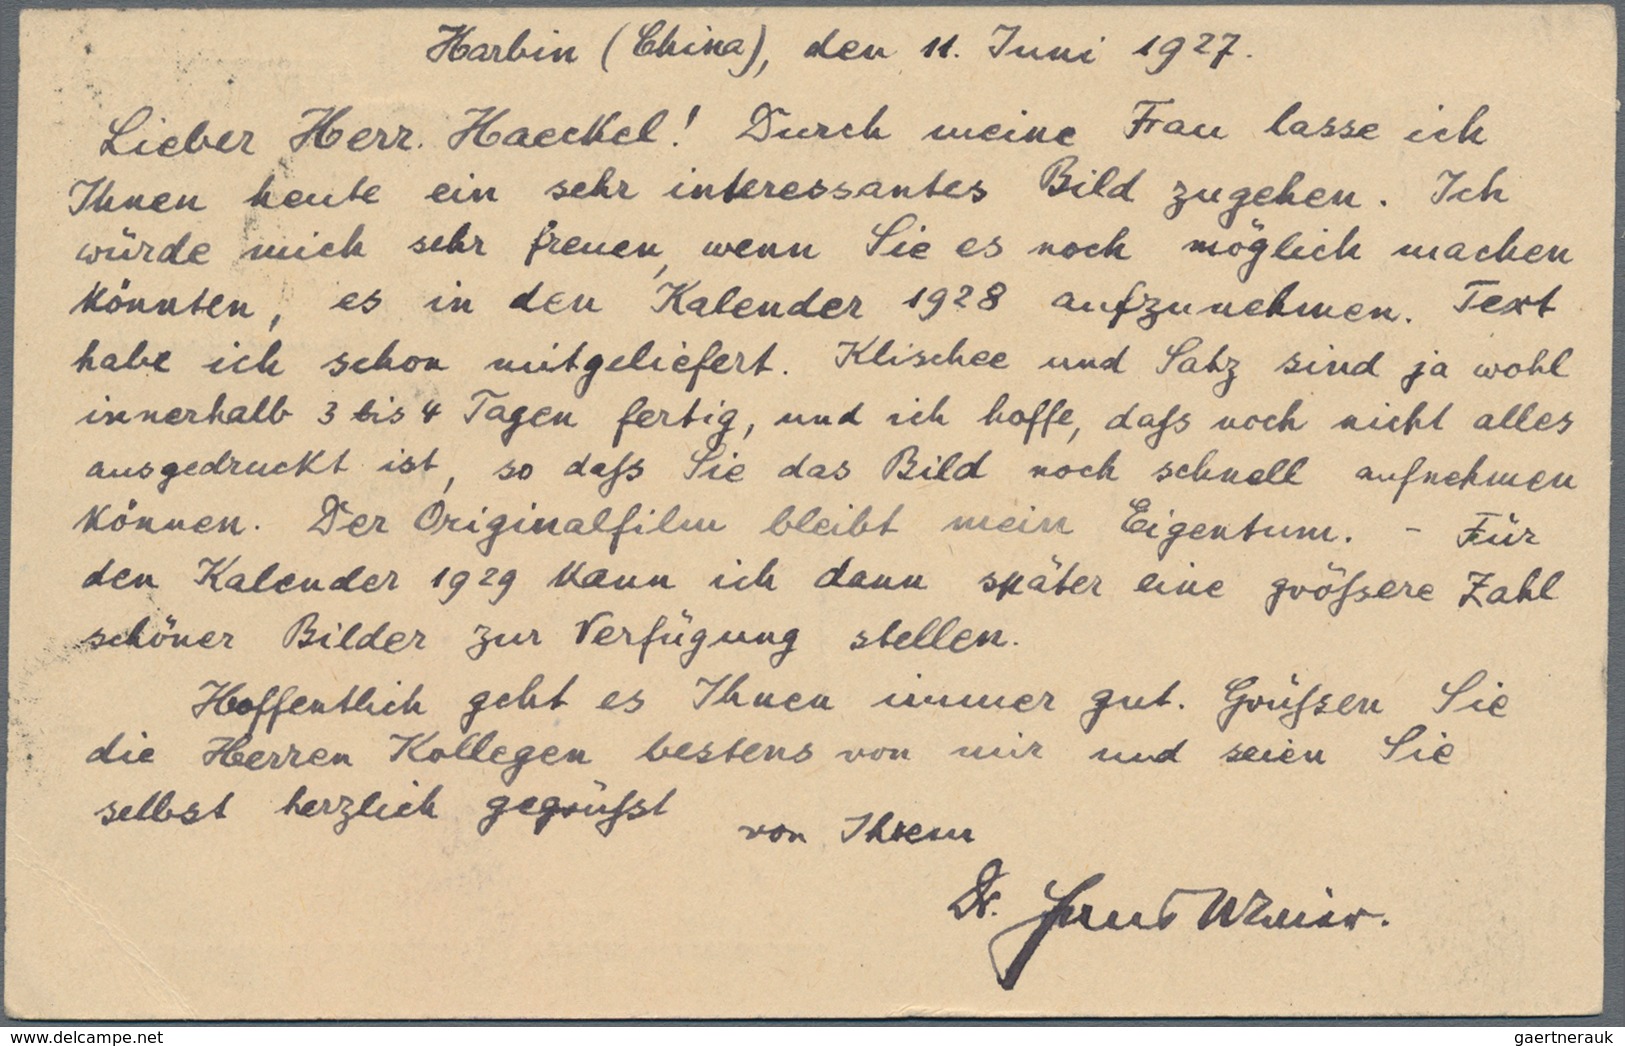 Harbin (China), den 11. Juni 1927.
Lieber Herr. Haeckel! Durch meine Frau lasse ich
Ihnen heute ein sehr interessantes Bild zugehen. Ich
würde mich sehr freuen, wenn Sie es noch möglich machen
könnten, es in den Kalender 1928 aufzunehmen. Text
habe ich schon mitgeliefert. Klischee und Satz sind ja wohl
innerhalb 3 bis 4 Tagen fertig, und ich hoffe, daſs noch nicht alles
ausgedruckt ist, so daſs Sie das Bild noch schnell aufnehmen
können. Der Originalfilm bleibt mein Eigentum. – Für
den Kalender 1929 kann ich dann später eine gröſsere Zahl
schöner Bilder zur Verfügung stellen.
Hoffentlich geht es Ihnen immer gut. Grüſsen Sie
die Herren Kollegen bestens von mir und seien Sie
selbst herzlich gegrüſst
von Ihrem
Dr.
delcampe.net
gaertnerauk